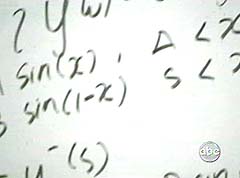 ? y w)
sin(x), Δ < x
sin(1-x) s < x
y⁻(s)
abc